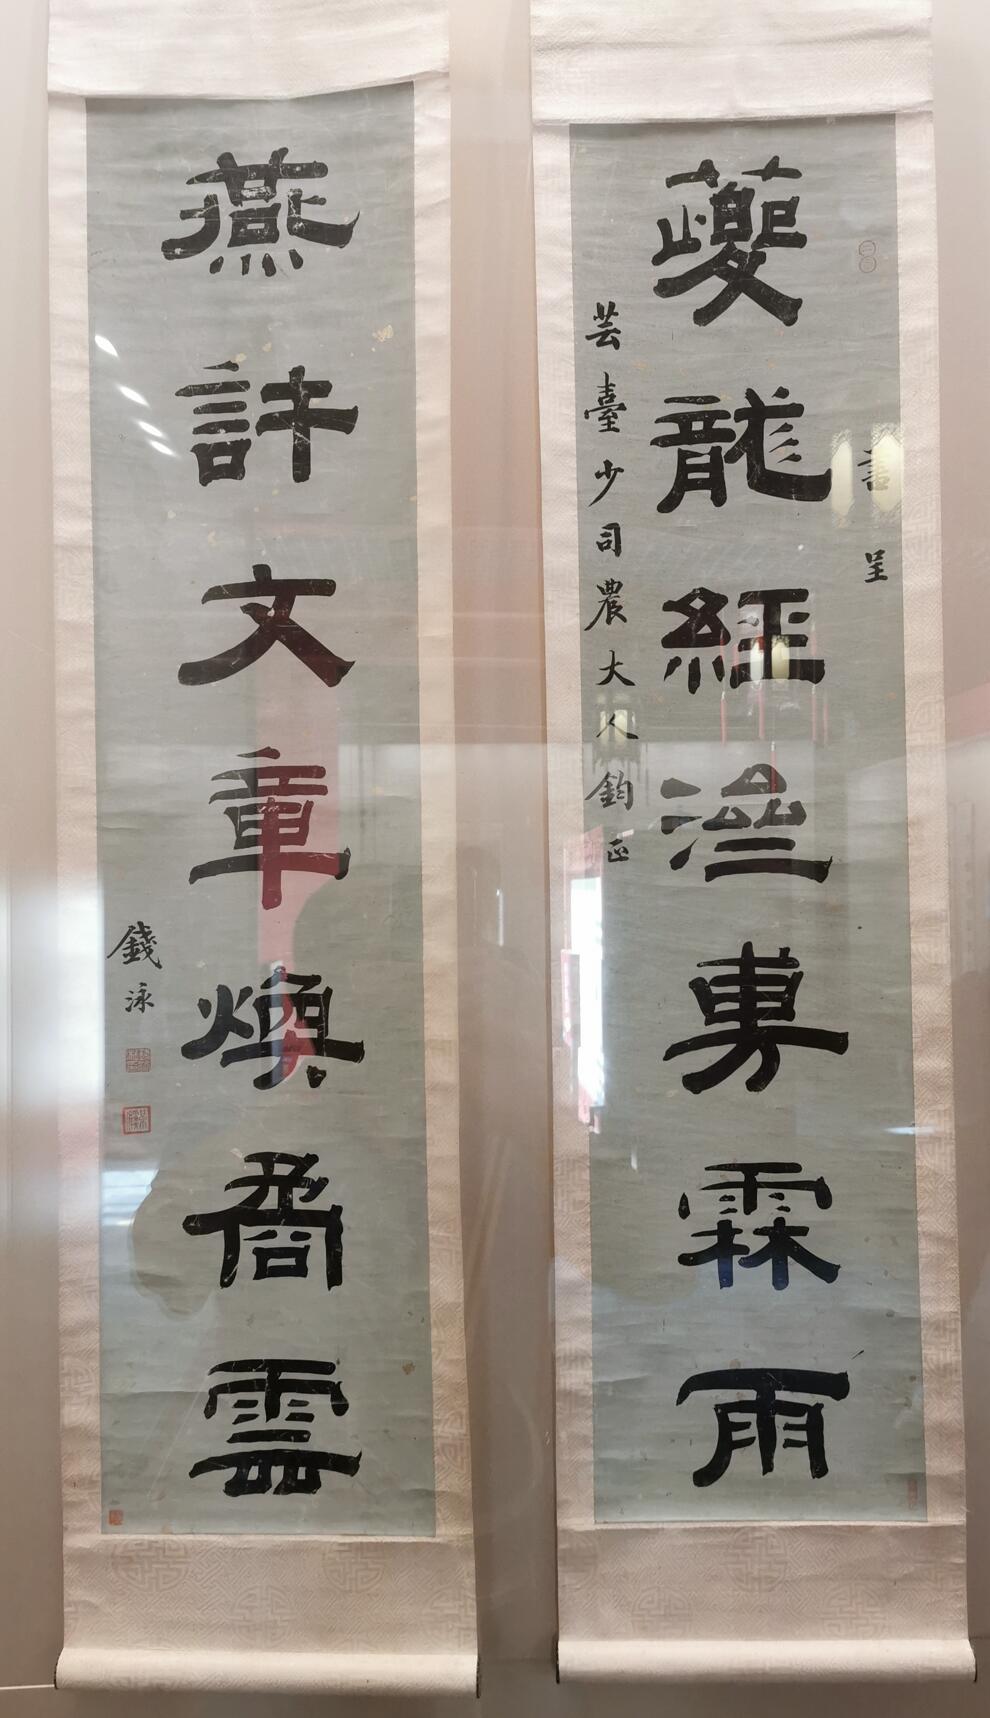 書呈
夔龍經濟旉霖雨
芸臺少司農大人鈞正
燕許文章煥矞雲
錢泳